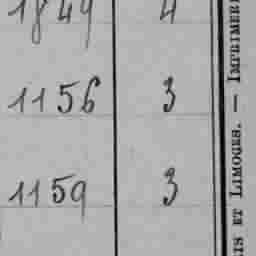 1849 4
1156 3
1159 3
IS ET LIMOGES. — IMPRIMERI